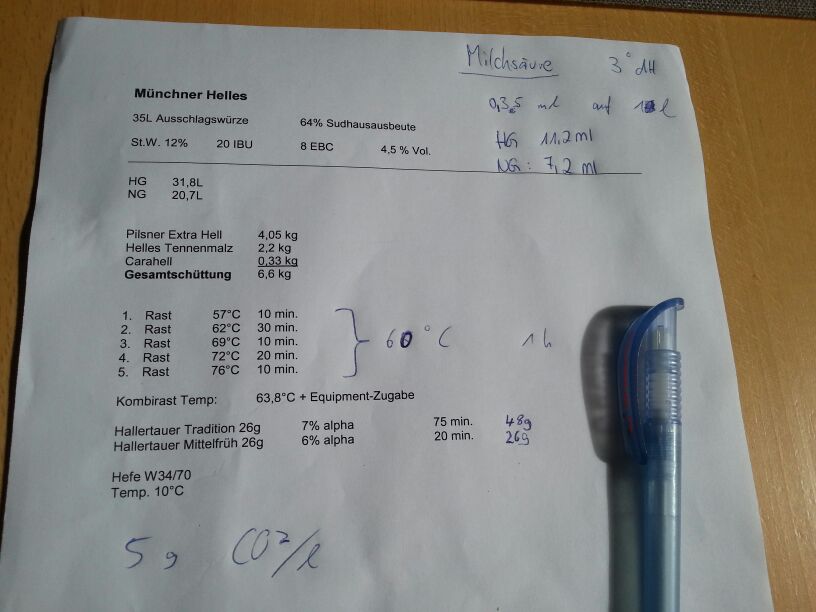 Milchsäure 3°dH
Münchner Helles
0,35 ml auf 1 l
35L Ausschlagswürze 64% Sudhausausbeute
HG 11,2 ml
St.W. 12% 20 IBU 8 EBC 4,5 % Vol.
NG: 7,2 ml
HG 31,8L
NG 20,7L
Pilsner Extra Hell 4,05 kg
Helles Tennenmalz 2,2 kg
Carahell 0,33 kg
Gesamtschüttung 6,6 kg
1. Rast 57°C 10 min.
2. Rast 62°C 30 min.
3. Rast 69°C 10 min. } 60°C 1h
4. Rast 72°C 20 min.
5. Rast 76°C 10 min.
Kombirast Temp: 63,8°C + Equipment-Zugabe
Hallertauer Tradition 26g 7% alpha 75 min. 48g
Hallertauer Mittelfrüh 26g 6% alpha 20 min. 26g
Hefe W34/70
Temp. 10°C
5 g CO²/l